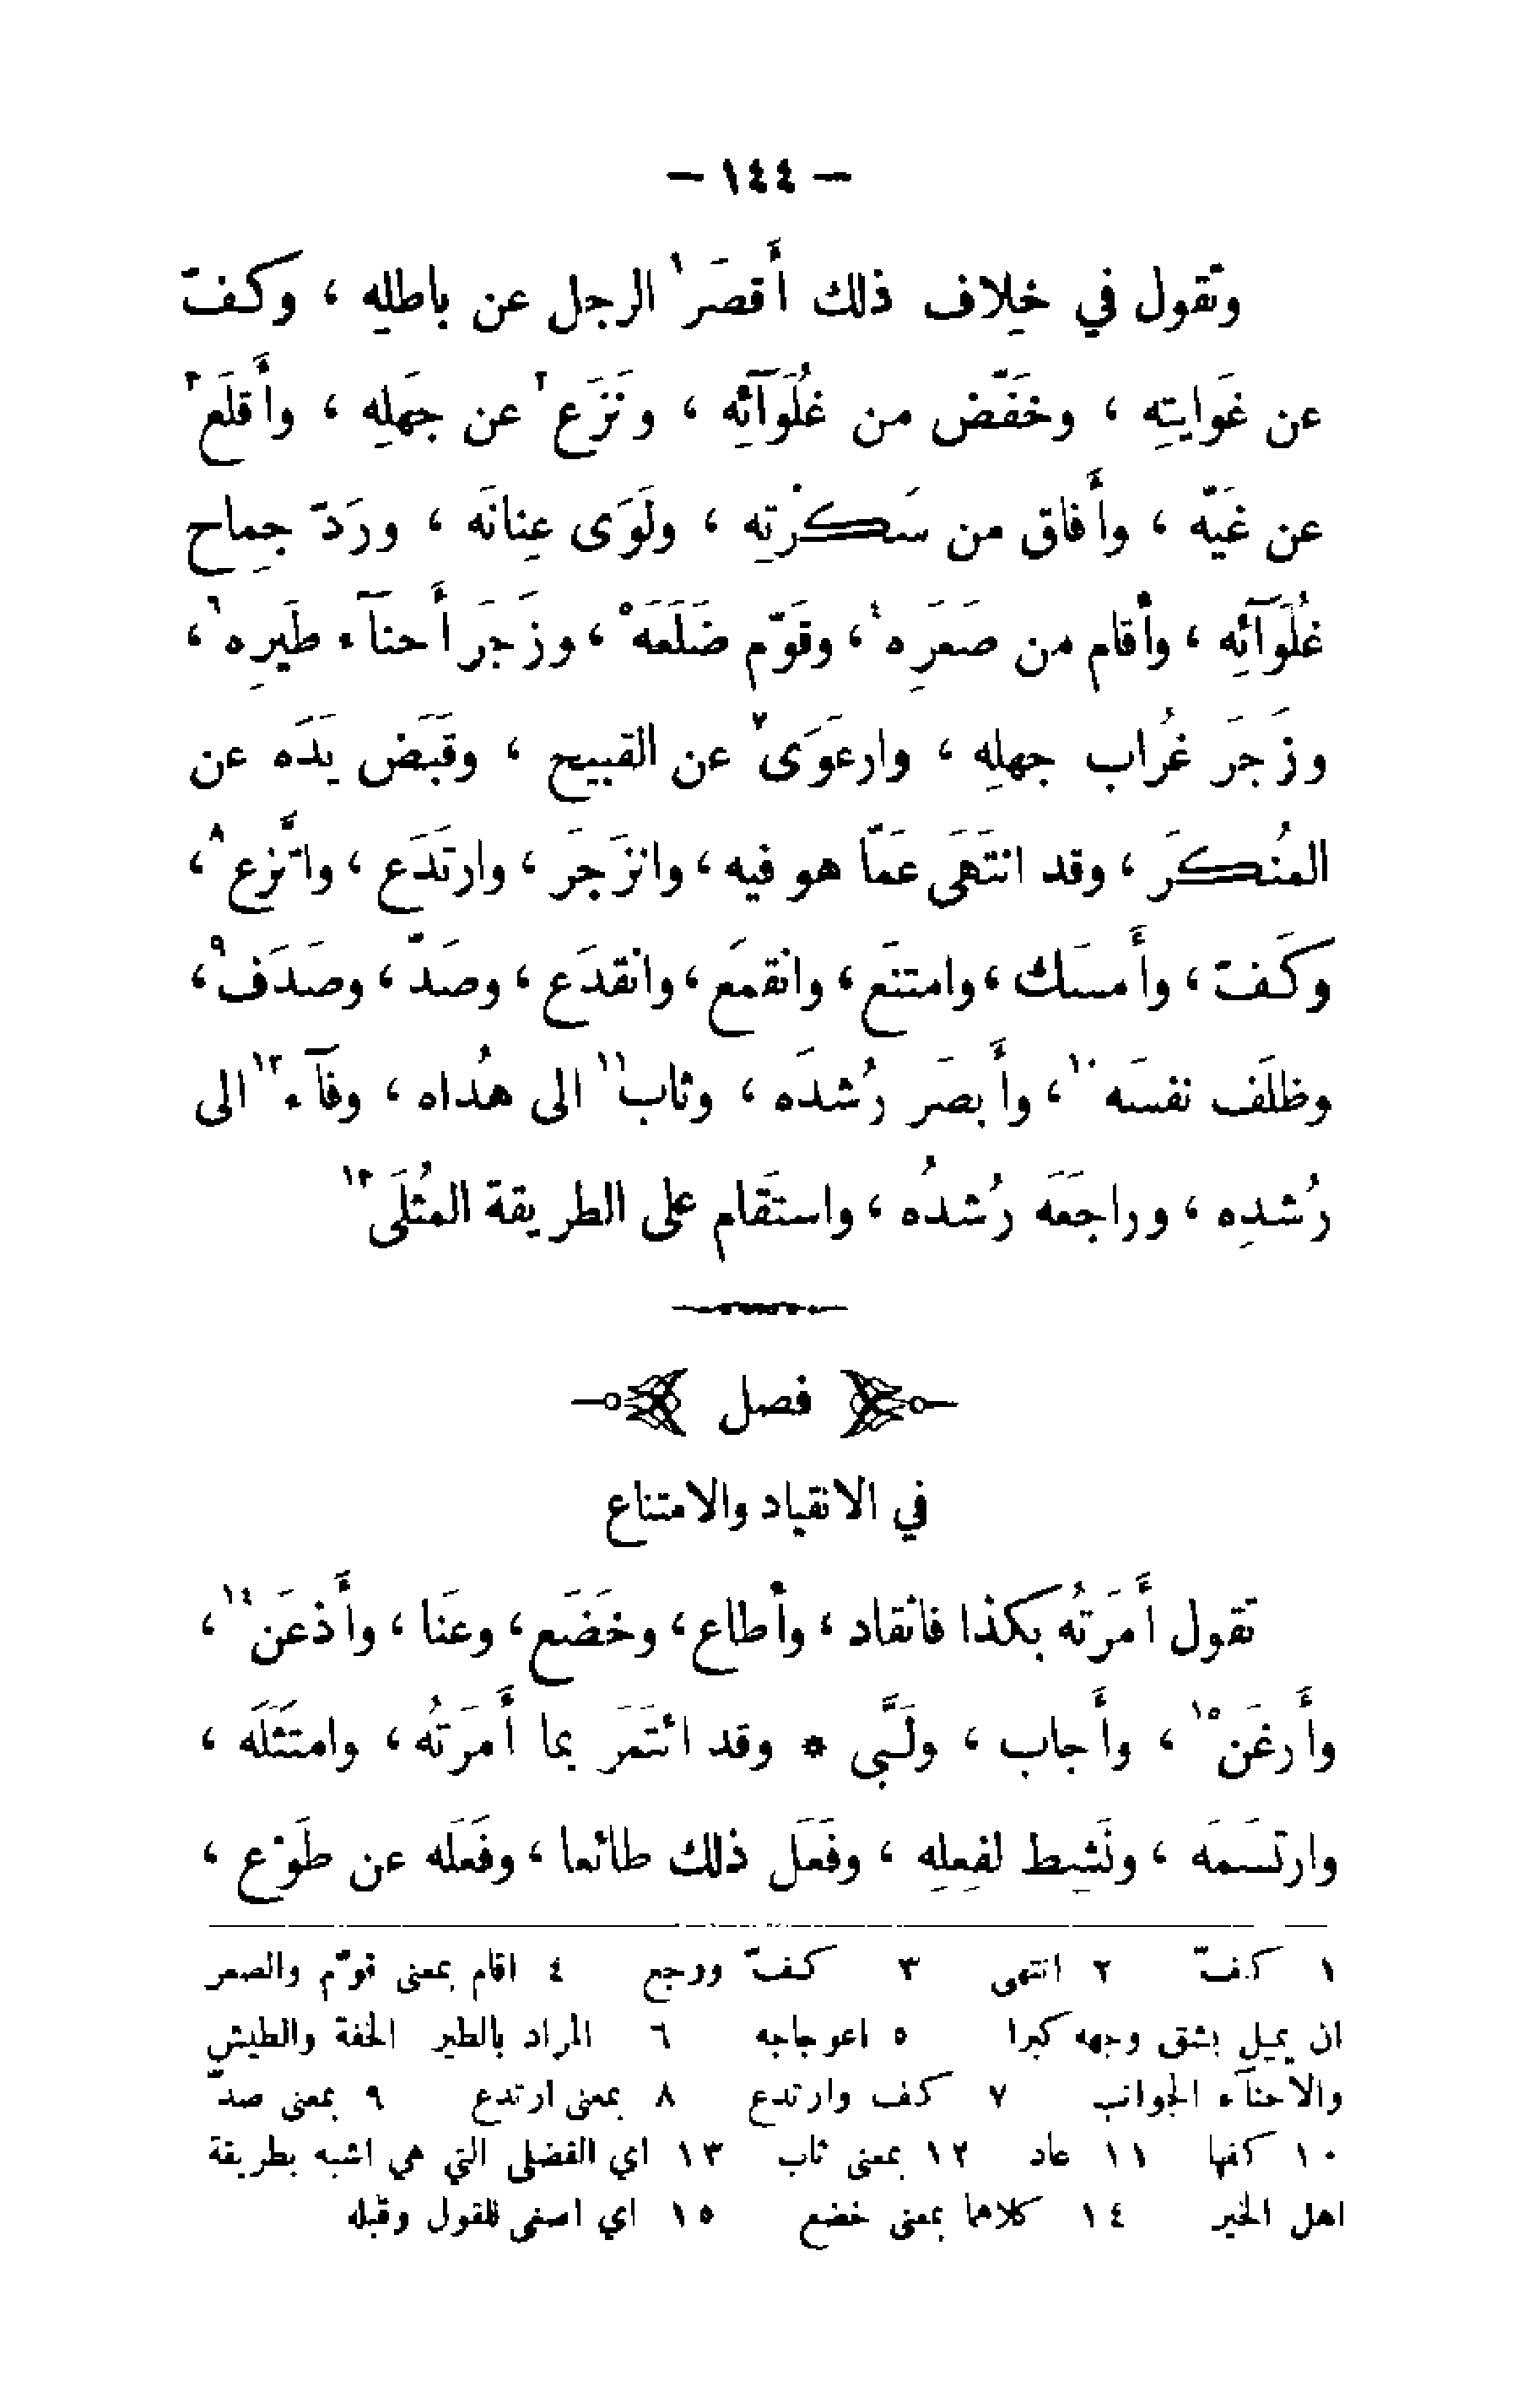 — ١٤٤ —
وتقول في خِلاف ذلك أَقصَرَ١ الرجل عن باطلِهِ ، وكفّ
عن غَوايتِهِ ، وخَفَّض من غُلَوَآئِهِ ، ونَزَع٢ عن جهَلِهِ ، وأَقلَع٣
عن غَيّه ، وأَفاق من سَكْرتِهِ ، ولَوَى عِنانَه ، ورَدّ جِماح
غُلَوَآئِهِ ، وأقام من صَعَرِه٤ ، وقَوّم ضَلَعَه٥ ، وزَجَر أَحنآء طَيرِه٦ ،
وزَجَرَ غُراب جهلِهِ ، وارعَوَى٧ عن القبيح ، وقبَض يَدَه عن
المُنكَر ، وقد انتَهَى عَمّا هو فيه ، وانزَجَرَ ، وارتَدَع ، واتَّزع٨ ،
وكَفّ ، وأَمسَك ، وامتنَع ، وانقمَع ، وانقدَع ، وصَدّ ، وصَدَف٩ ،
وظلَف نفسَه١٠ ، وأَبصَر رُشدَه ، وثاب١١ الى هُداه ، وفآء١٢ الى
رُشدِه ، وراجَعَه رُشدُه ، واستَقام على الطريقة المُثلَى١٣
فصل
في الانقياد والامتناع
تقول أَمَرتُه بكذا فانقاد ، وأطاع ، وخَضَع ، وعَنا ، وأَذعَن١٤ ،
وأَرغَن١٥ ، وأَجاب ، ولَبَّى * وقد ائتَمَرَ بما أَمَرتُه ، وامتَثَلَه ،
وارتَسَمَه ، ونَشِط لفِعلِهِ ، وفَعَل ذلك طائعا ، وفَعَلَه عن طَوْع ،
١ كفّ ٢ انتهى ٣ كفّ ورجع ٤ اقام بمعنى قوّم والصعر
ان يميل بشق وجهه كبرا ٥ اعوجاجه ٦ المراد بالطير الخفة والطيش
والاحنآء الجوانب ٧ كف وارتدع ٨ بمعنى ارتدع ٩ بمعنى صدّ
١٠ كفها ١١ عاد ١٢ بمعنى ثاب ١٣ اي الفضلى التي هي اشبه بطريقة
اهل الخير ١٤ كلاهما بمعنى خضع ١٥ اي اصغى للقول وقبله